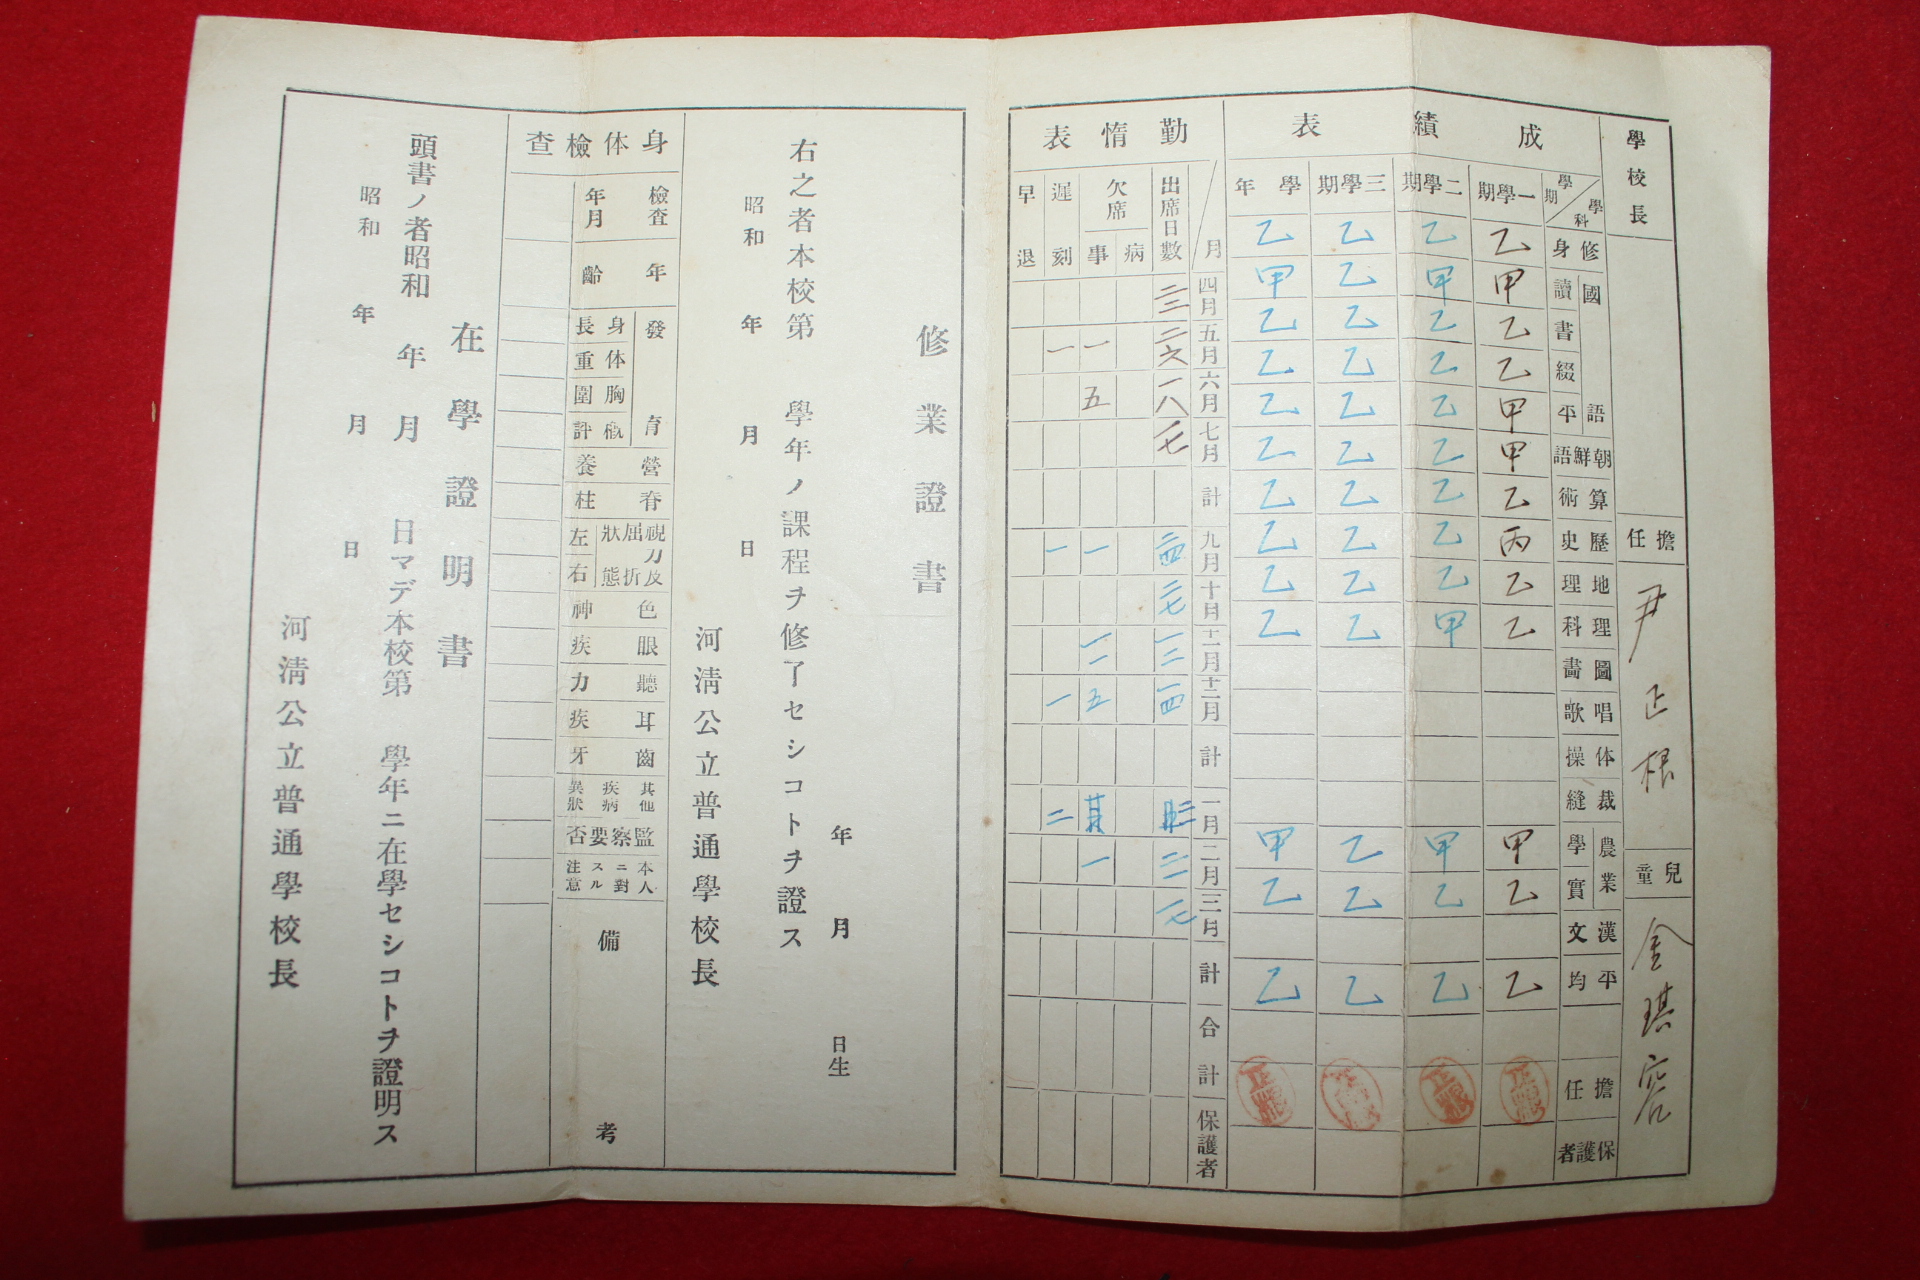 學校長
擔任
尹正根
兒童
金琪容
成績表
學期 學科
一學期
二學期
三學期
學年
修身 乙 乙 乙 乙
國語
讀 甲 甲 乙 甲
書 乙 乙 乙 乙
綴 乙 乙 乙 乙
平 甲 乙 乙 乙
朝鮮語 甲 乙 乙 乙
算術 乙 乙 乙 乙
歷史 丙 乙 乙 乙
地理 乙 乙 乙 乙
理科 乙 甲 乙 乙
圖畵
唱歌
体操
裁縫
農業
學 甲 甲 乙 甲
實 乙 乙 乙 乙
漢文
平均 乙 乙 乙 乙
擔任 正根 正根 正根 正根
保護者
勤惰表
月
出席日數
欠席
病
事
遲刻
早退
四月 二三
五月 二六 一 一
六月 一八 五
七月 一七
計
九月 二四 一 一
十月 二七
十一月
十二月 一四 五 一
計
一月 二
二月 二二 一
三月 一七
計
合計
保護者
修業證書
年 月 日生
右之者本校第 學年ノ課程ヲ修了セシコトヲ證ス
昭和 年 月 日
河淸公立普通學校長
身体檢査
檢査年月
年齡
發育
身長
体重
胸圍
概評
營養
脊柱
視力及屈折狀態
左
右
色神
眼疾
聽力
耳疾
齒牙
其他疾病異狀
監察要否
本人ニ對スル注意
備考
在學證明書
頭書ノ者昭和 年 月 日マデ本校第 學年ニ在學セシコトヲ證明ス
昭和 年 月 日
河淸公立普通學校長